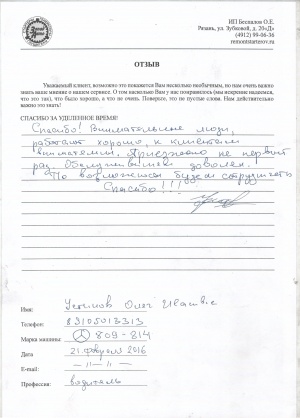 ИП Беспалов О.Е.
Рязань, ул. Зубковой, д. 20«Д»
(4912) 99-06-36
remontstarterov.ru
ОТЗЫВ
Уважаемый клиент, возможно это покажется Вам несколько необычным, но нам очень важно
знать ваше мнение о нашем сервисе. О том насколько Вам у нас понравилось (мы искренне надеемся,
что это так), что было хорошо, а что не очень. Поверьте, это не пустые слова. Нам действительно
важно это знать!
СПАСИБО ЗА УДЕЛЕННОЕ ВРЕМЯ!
Спасибо! Внимательные люди,
работают хорошо, к клиентам
внимательны. Приезжаю не первый
раз. Обслуживанием доволен.
По возможности будем сотрудничать
Спасибо!!!
Имя: Устинов Олег Иванович
Телефон: 89105013313
Марка машины: 809-814
Дата 21 февраля 2016
E-mail: — 11 — 11 —
Профессия: водитель